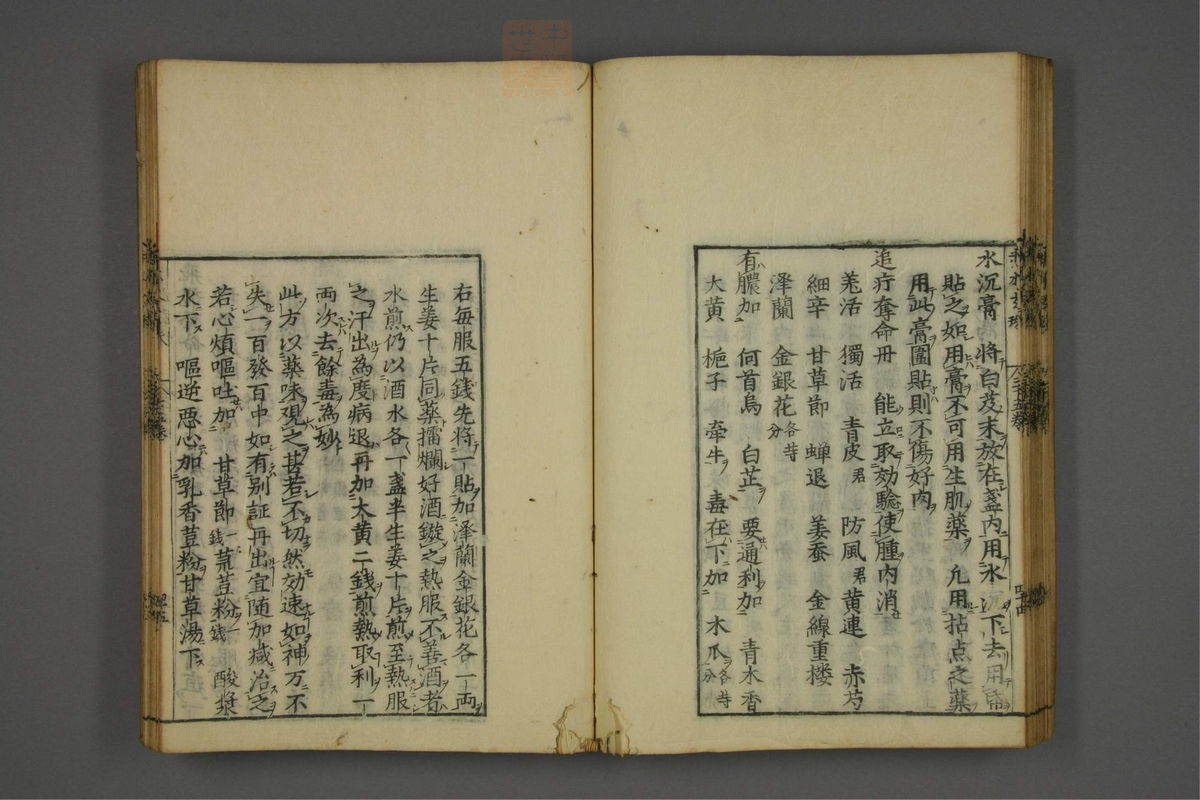 水沉膏 將白芨末放在盞內用水沉下去用昏
貼之如用膏不可用生肌藥 允用拈点之藥
用此膏圍貼則不傷好肉
追疔奪命丹 能立取効驗使腫內消
羗活 獨活 青皮君 防風君 黄連 赤芍
細辛 甘草節 蟬退 姜蚕 金線重楼
泽蘭 金銀花各等分
有膿加 何首烏 白芷 要通利加 青木香
大黄 栀子 牵牛 毒在下加 木瓜各等分
右每服五錢先將一貼加泽蘭金銀花各一両
生姜十片同薬擂爛好酒鏇之熱服不善酒者
水煎仍以酒水各一盞半生姜十片煎至熱服
之汗出為度病退再加大黄二錢煎熱取利一
両次去餘毒為妙
此方以薬味覌之甚若不切然効速如神万不
失一百發百中如有别証再出宜随加减治之
若心煩嘔吐加 甘草節一錢 菉荳粉一錢 酸漿
水下 嘔逆悪心加乳香荳粉甘草湯下